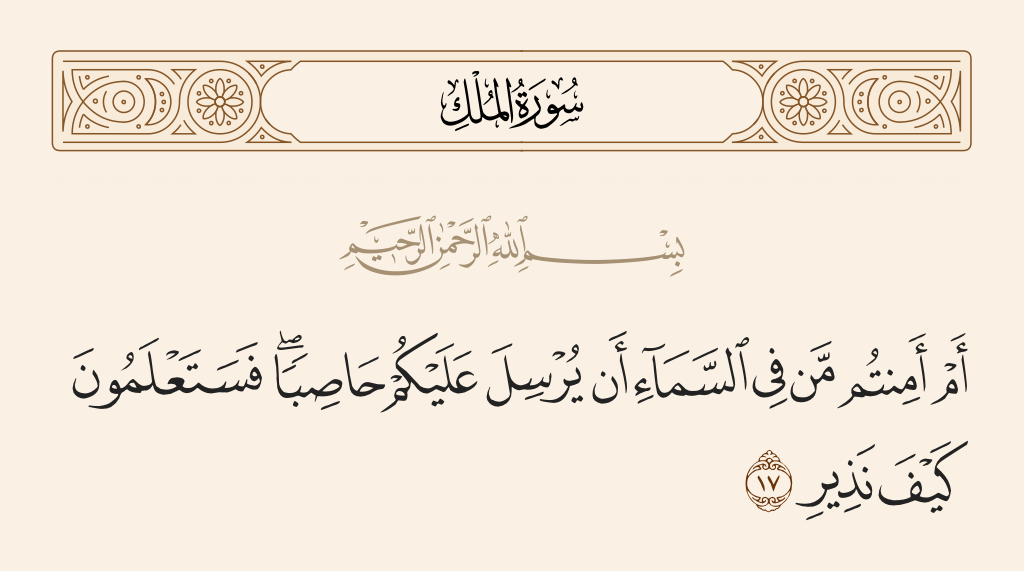 سُورَةُ الْمُلْكِ
بِسْمِ ٱللَّهِ ٱلرَّحْمَٰنِ ٱلرَّحِيمِ
أَمْ أَمِنتُم مَّن فِى ٱلسَّمَآءِ أَن يُرْسِلَ عَلَيْكُمْ حَاصِبًا ۖ فَسَتَعْلَمُونَ
كَيْفَ نَذِيرِ ١٧